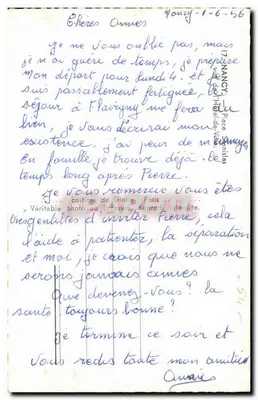 Nancy-1-6-56
Chères amies
je ne vous oublie pas, mais
je n'ai guère de temps, je prépare
mon départ pour lundi 4. et je
suis passablement fatiguée, le
séjour à Flavigny me fera du
bien, je vous décrirai mon
existence, j'ai peur de m'ennuyer
En famille je trouve déjà le
temps long après Pierre.
Je vous remercie vous êtes
très gentilles d'inviter Pierre, cela
l'aide à patienter, la séparation
et moi, je crois que nous ne
serons jamais amies
Que devenez-vous? la
santé toujours bonne?
je termine ce soir et
vous redis toute mon amitié
17. NANCY
Véritable photo